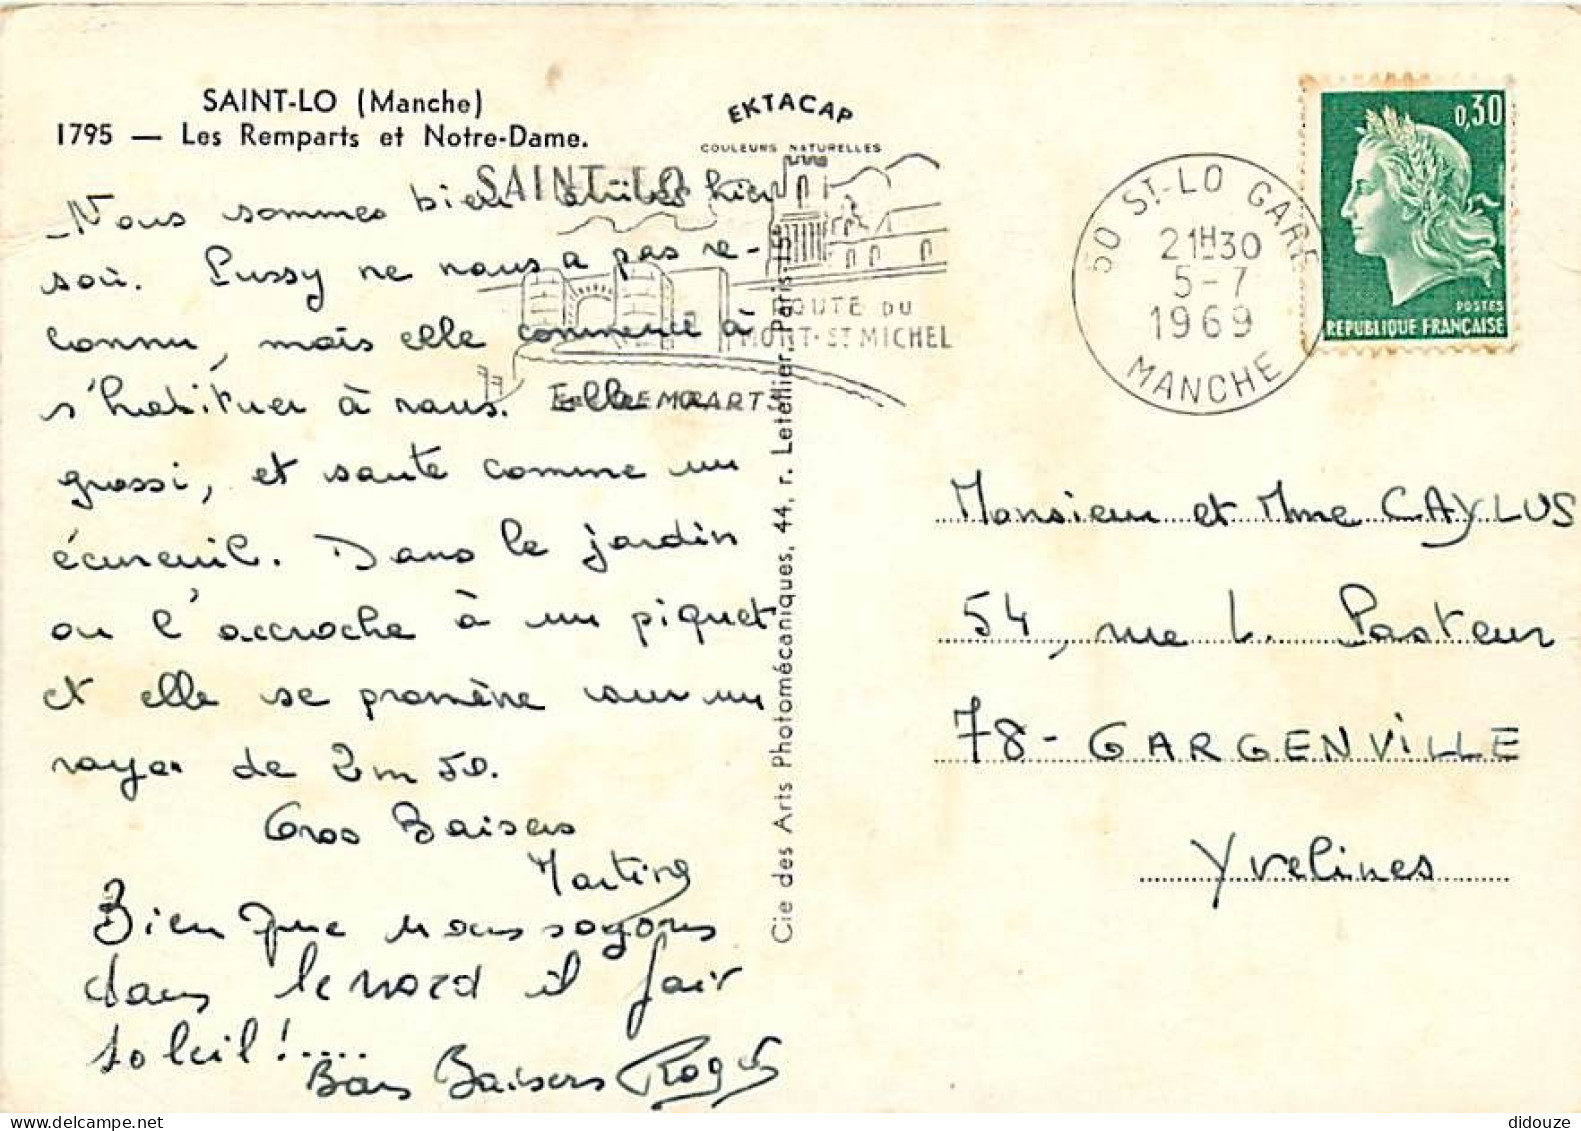 SAINT-LO (Manche)
1795 — Les Remparts et Notre-Dame.
EKTACAP
COULEURS NATURELLES
SAINT-LO
ROUTE DU
MONT-ST MICHEL
REMPARTS
50 ST-LO GARE
21H30
5-7
1969
MANCHE
0,30
POSTES
REPUBLIQUE FRANÇAISE
Nous sommes bien arrivés hier
soir. Pussy ne nous a pas re-
connu, mais elle commence à
s'habituer à nous. Elle a
grossi, et saute comme un
écureuil. Dans le jardin
on l'accroche à un piquet
et elle se promène sur un
rayon de 2m50.
Gros Baisers
Martine
Bien que nous soyons
dans le nord il fait
soleil !....
Bons Baisers Roger
Cie des Arts Photomécaniques, 44, r. Letellier, Paris-15e
Monsieur et Mme CAYLUS
54, rue L. Pasteur
78-GARGENVILLE
Yvelines
didouze